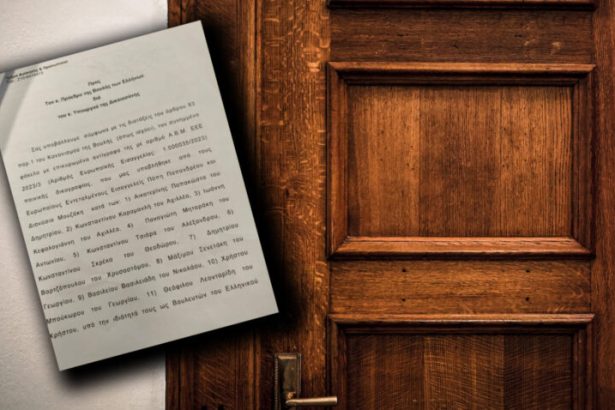 Προς
Τον κ. Πρόεδρο της Βουλής των Ελλήνων
δια
του κ. Υπουργού της Δικαιοσύνης
Σας υποβάλλουμε, σύμφωνα με τις διατάξεις του άρθρου 83
παρ.1 του Κανονισμού της Βουλής (όπως ισχύει), τον συνημμένο
φάκελο με επικυρωμένα αντίγραφα της με αριθμό Α.Β.Μ. ΕΕΕ
2023/5 (Αριθμός Ευρωπαϊκής Εισαγγελίας: 1.000035/2023)
ποινικής δικογραφίας, που μας υποβλήθηκε από τους
Ευρωπαίους Εντεταλμένους Εισαγγελείς Πόπη Παπανδρέου και
Διονύσιο Μουζάκη κατά των: 1) Αικατερίνης Παπακώστα του
Δημητρίου, 2) Κωνσταντίνου Καραμανλή του Αχιλλέα, 3) Ιωάννη
Κεφαλογιάννη του Αχιλλέα, 4) Παναγιώτη Μηταράκη του
Αντωνίου, 5) Κωνσταντίνου Τσιάρα του Αλεξάνδρου, 6)
Κωνσταντίνου Σκρέκα του Θεοδώρου, 7) Δημητρίου
Βαρτζόπουλου του Χρυσοστόμου, 8) Μάξιμου Σενετάκη του
Γεωργίου, 9) Βασιλείου Βασιλειάδη του Νικολάου, 10) Χρήστου
Μπουκώρου του Γεωργίου, 11) Θεόφιλου Λεονταρίδη του
Χρήστου, υπό την ιδιότητά τους ως Βουλευτών του Ελληνικού